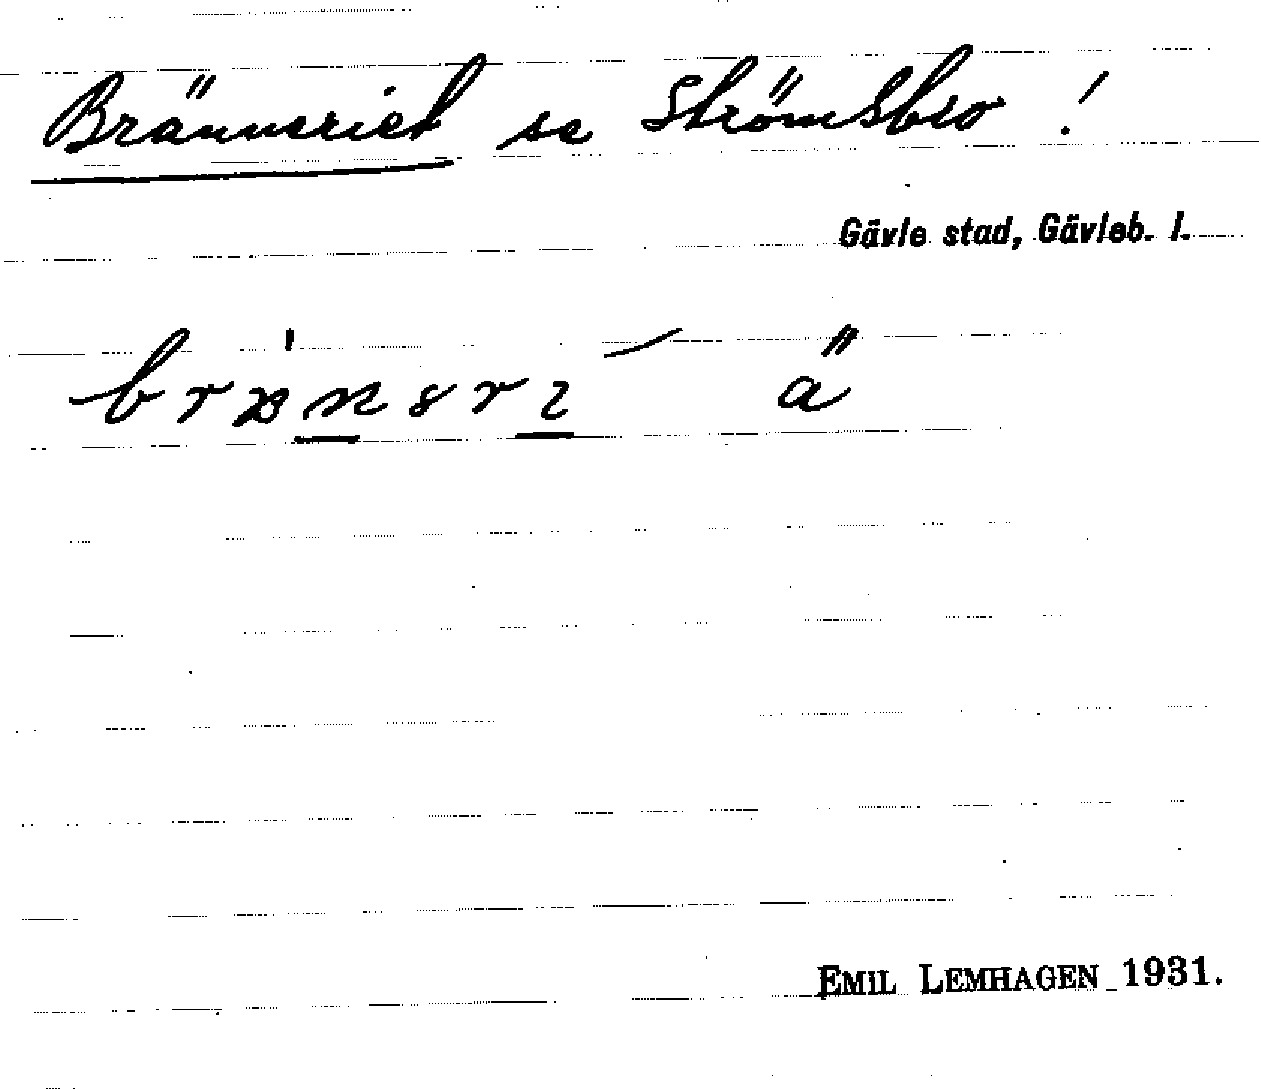 Bränneriet se Strömsbro !
Gävle stad, Gävleb. l.
ä
EMIL LEMHAGEN 1931.